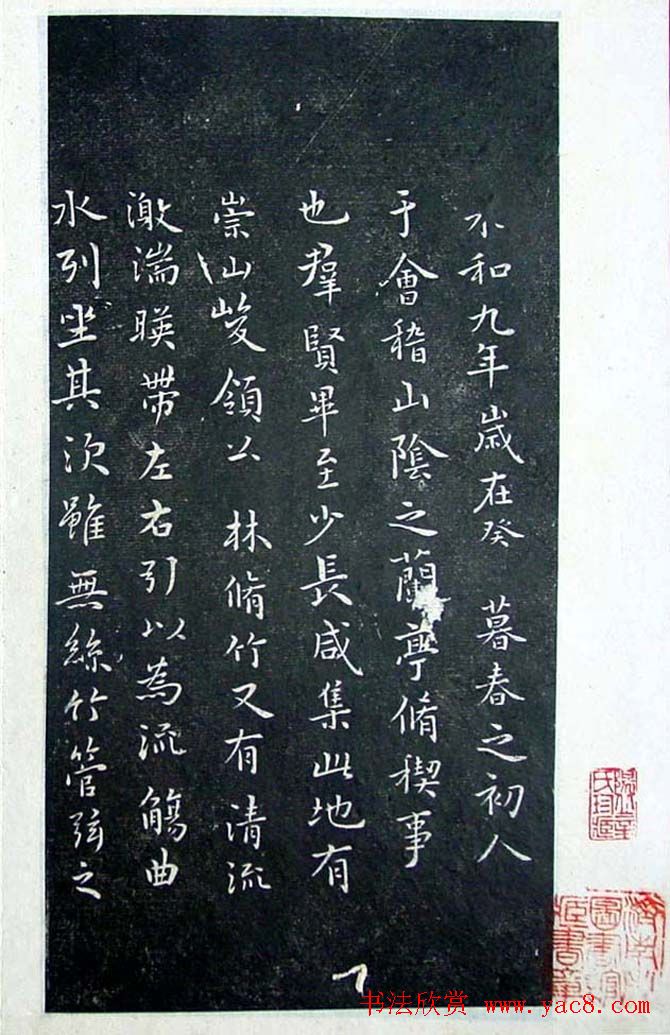 不和九年歲在癸 暮春之初人
于會稽山陰之蘭亭脩稧事
也羣賢畢至少長咸集此地有
崇山峻領 林脩竹又有清流
激湍暎帶左右引以為流觴曲
水列坐其次雖無絲竹管弦之
书法欣赏 www.yac8.com